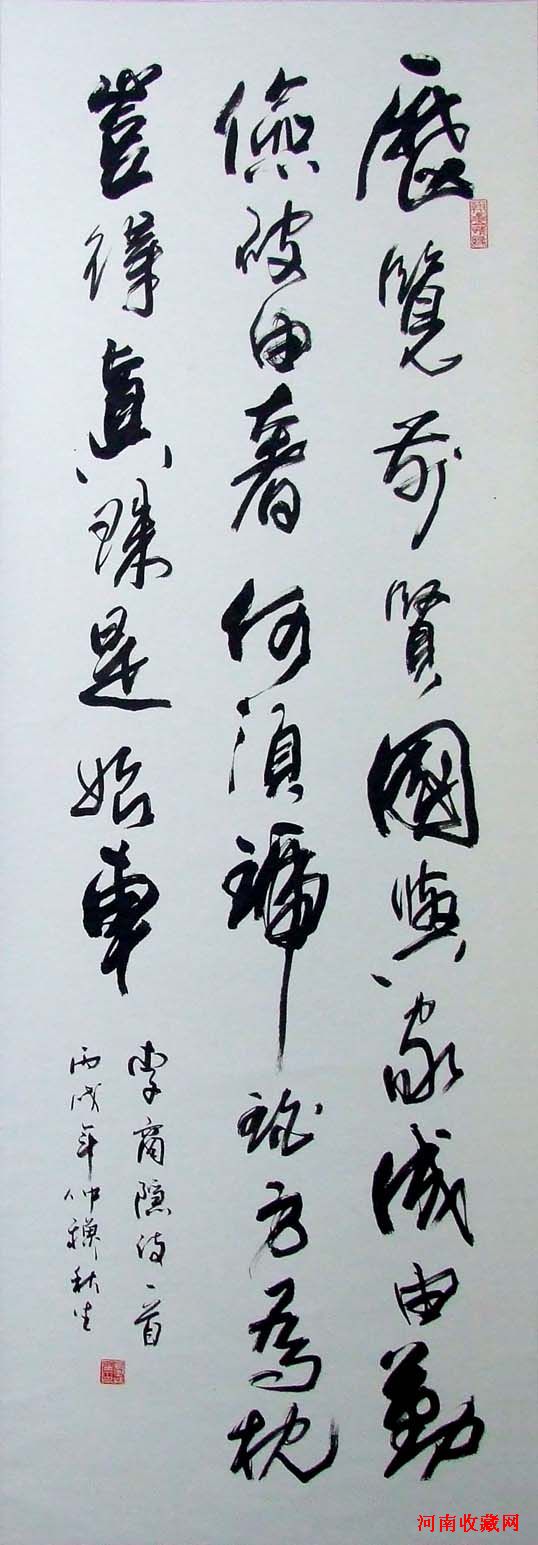 歷覽前賢國與家成由勤
儉破由奢何須琥珀方為枕
豈得眞珠是始車
李商隱诗一首
丙戌年仲秋生
河南收藏网